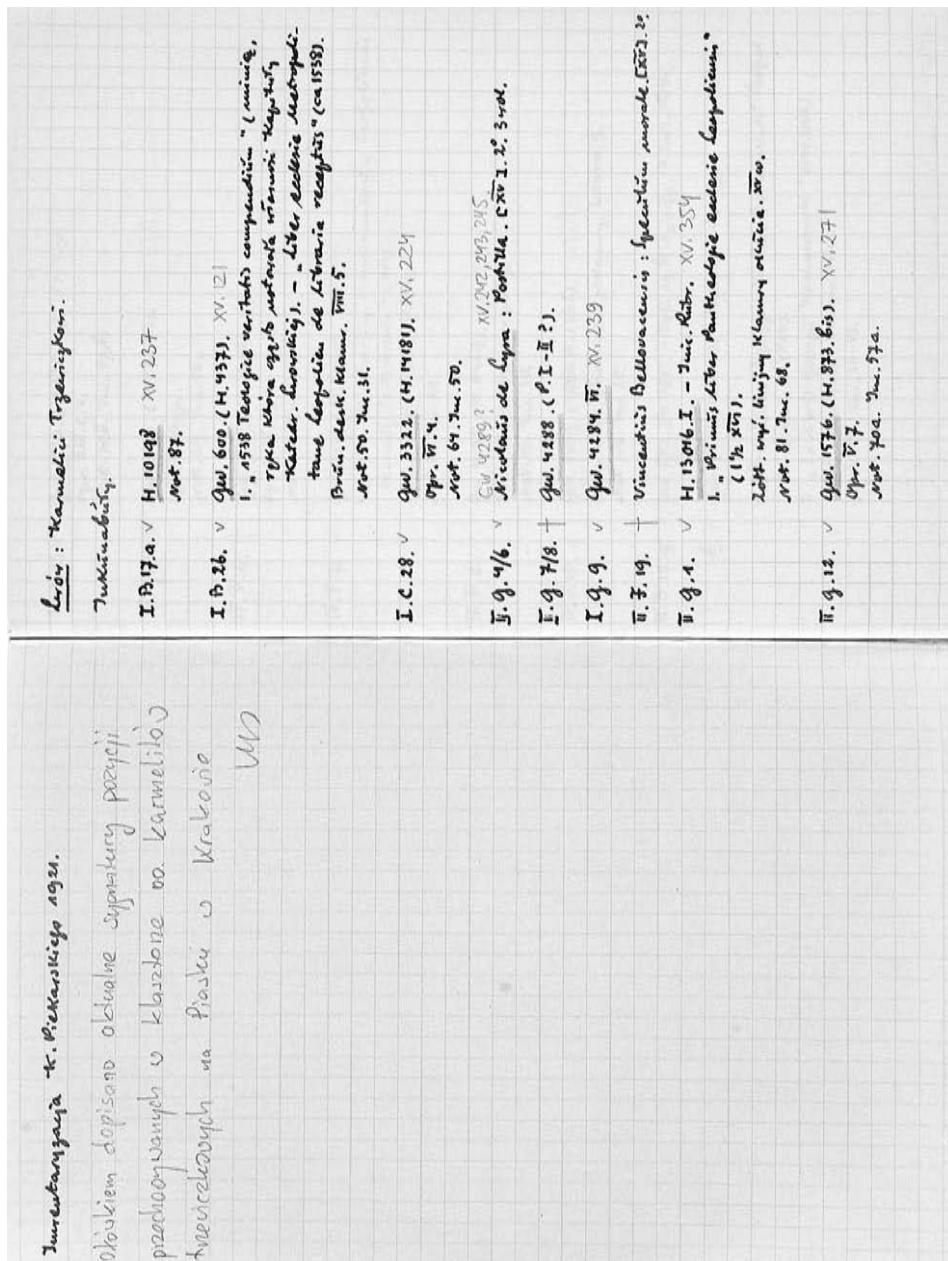 Inwentaryzacja K. Piekarskiego 1921.
ołówkiem dopisano aktualne sygnatury pozycji
przechowywanych w klasztorze oo. karmelitów
trzewiczkowych na Piasku w Krakowie
Lwów: Karmelici Trzewiczkowi.
Inkunabuły.
I.B.17.a. v H.10198 XV.237
Not. 87.
I.B.26. v GW. 600. (H.437). XV.121
1. "1538 Teologie veritatis compendium" (minią,
ręka która często notowała wierności Kapituły
Katedr. lwowskiej). – "Liber ecclesie Metropoli-
tane Leopolien de Libraria receptus" (ca 1538).
Brun. desk. Klamr. VIII.5.
Not. 50. Inc. 31.
I.C.28. v GW. 3322. (H.14181). XV.224
Opr. VI.4.
Not. 64. Inc. 50.
GW 4289? XV.242,243,245
II.G.4/6. v Nicolaus de Lyra: Postilla. [XV]. 2°. 3 vol.
II.G.7/8. + GW. 4288. (P. I-II?).
I.G.9. v GW. 4284. VI. XV.239
II.F.19. + Vincentius Bellovacensis: Speculum morale. [XV]. 2°.
II.G.1. v H.13016.I. – Inic. Rubr. XV.354
1. "Primus Liber Pantheologie ecclesie Leopoliensis"
(1½ XVI).
Not. 81. Inc. 68.
II.G.12. v GW. 1576. (H.873.bis). XV.271
Opr. VI.7.
Not. 70a. Inc. 57a.